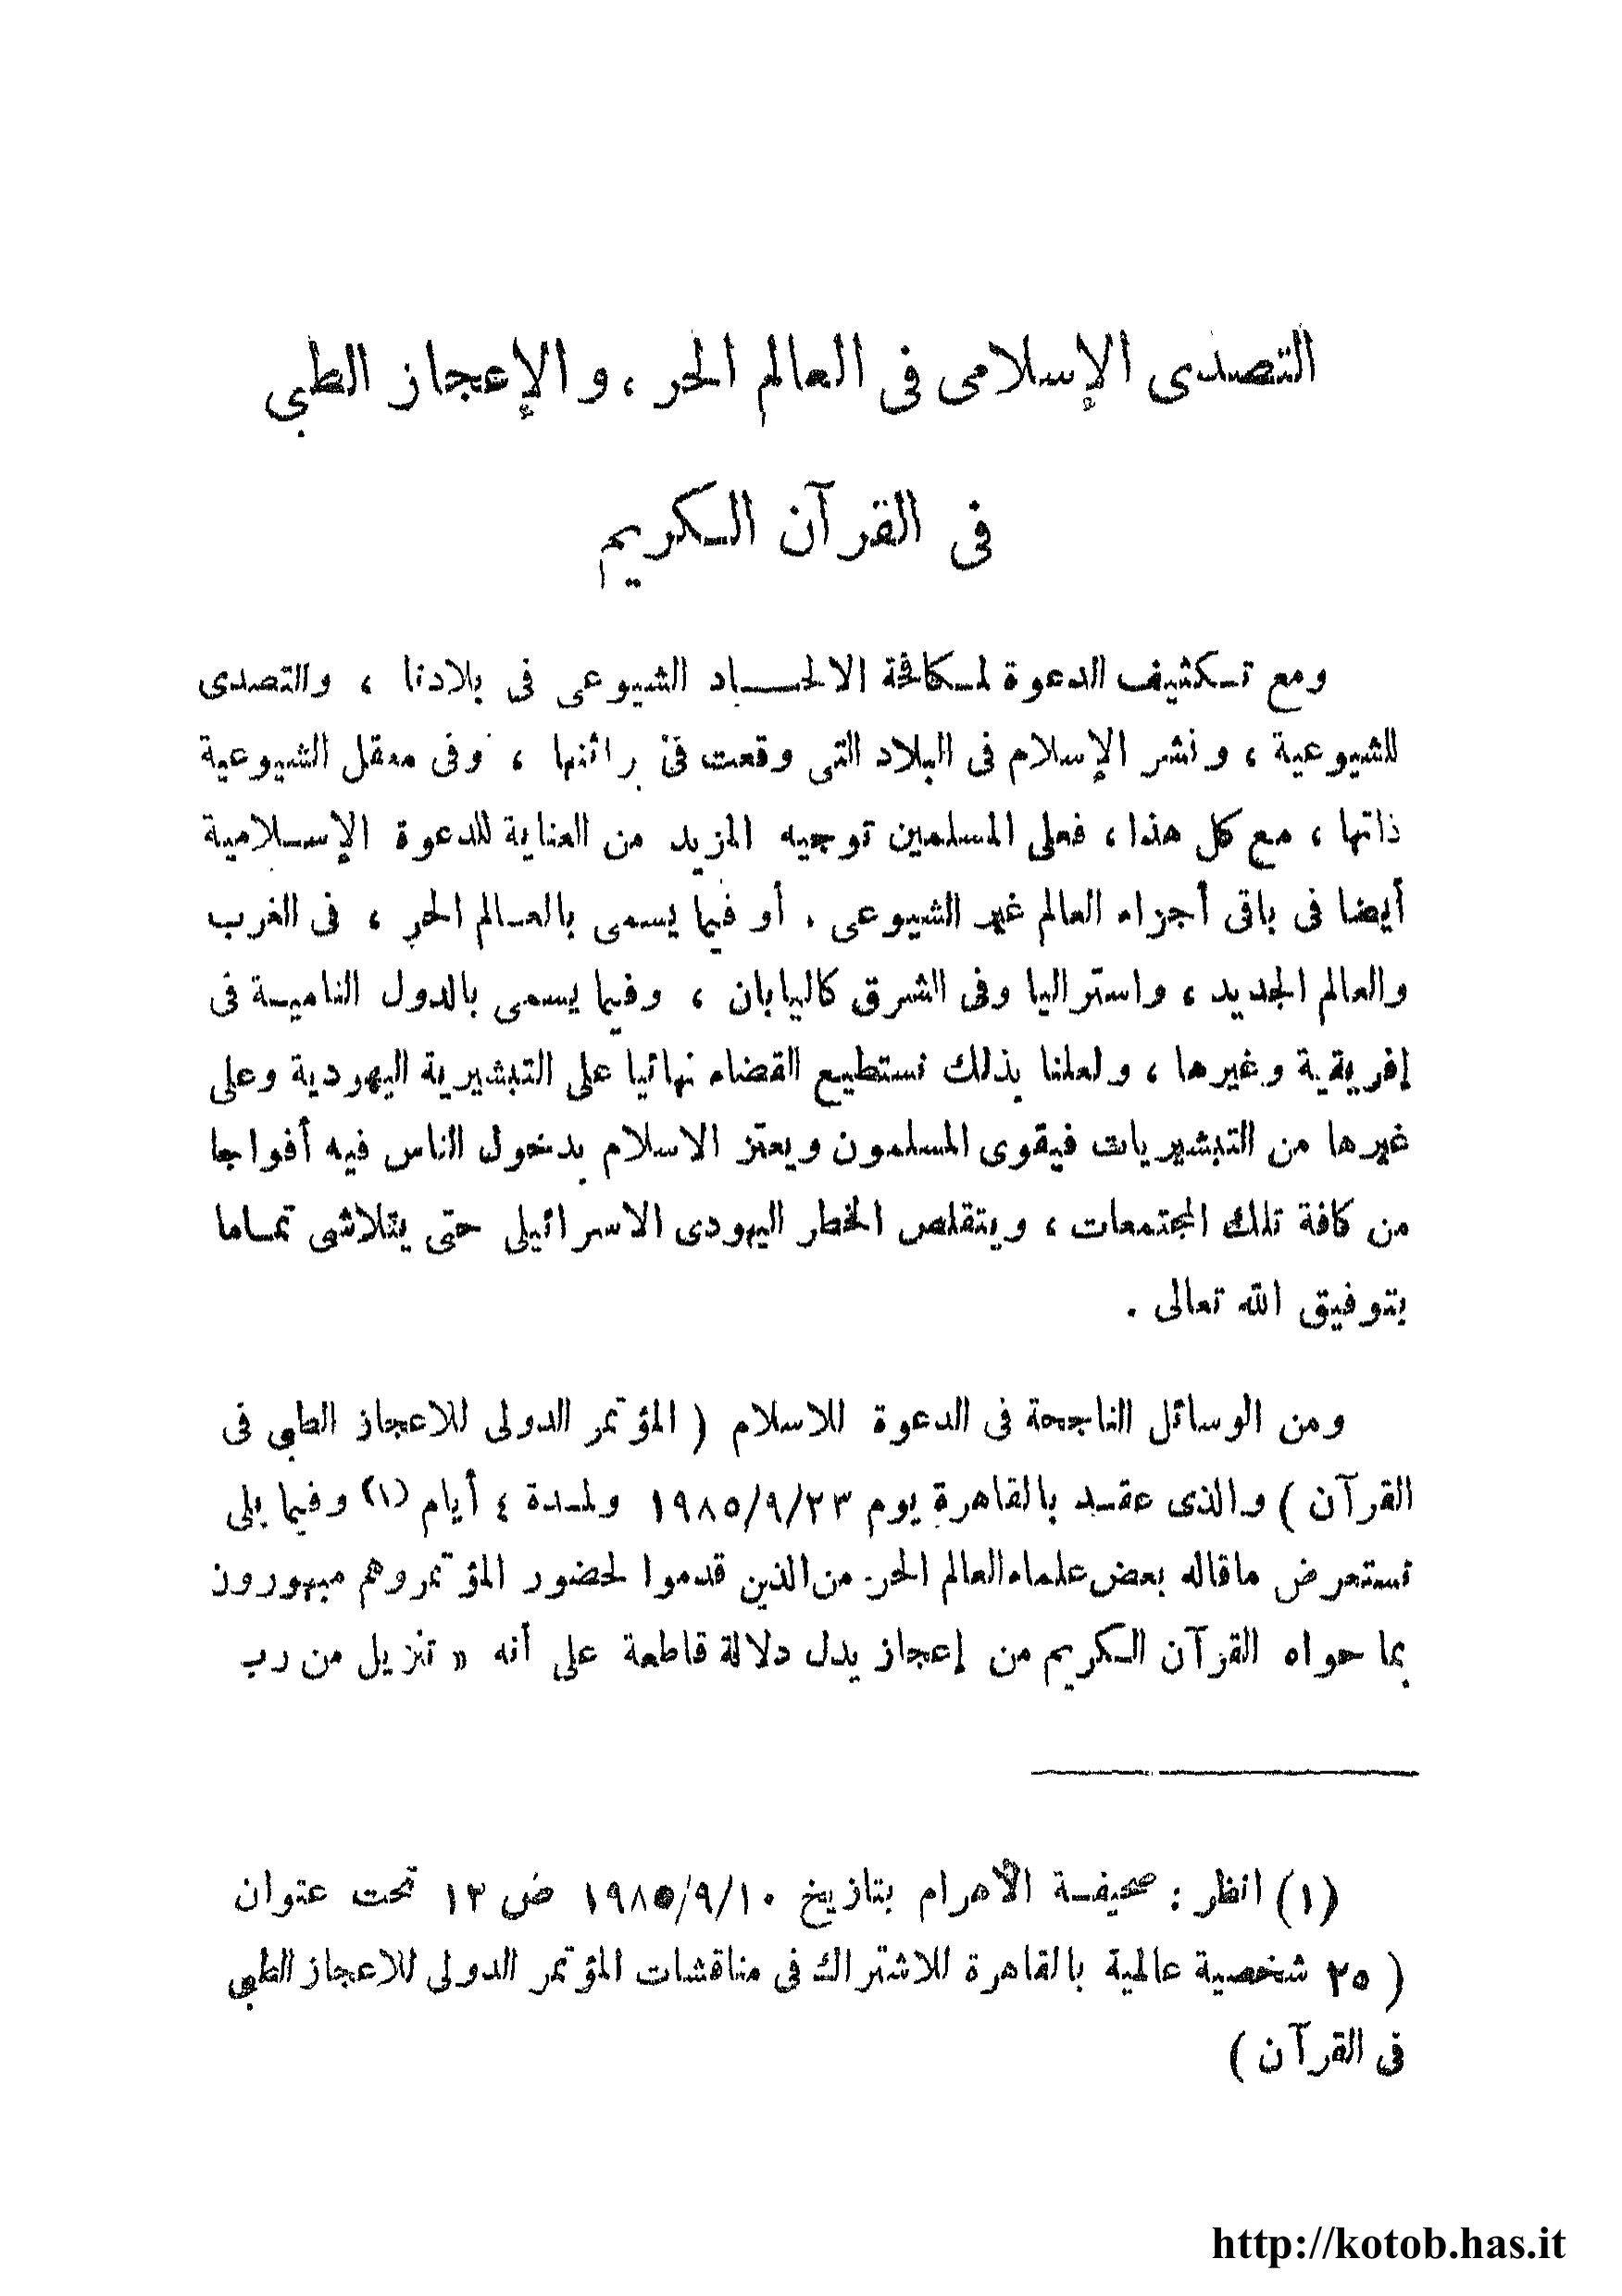 التصدى الإسلامى فى العالم الحر ، والإعجاز الطبى
فى القرآن الكريم
ومع تكثيف الدعوة لمكافحة الالحاد الشيوعى فى بلادنا ، والتصدى
للشيوعية ، ونشر الإسلام فى البلاد التى وقعت فى براثنها ، وفى معقل الشيوعية
ذاتها ، مع كل هذا ، فعلى المسلمين توجيه المزيد من العناية للدعوة الإسلامية
أيضا فى باقى أجزاء العالم غير الشيوعى . أو فيما يسمى بالعالم الحر ، فى الغرب
والعالم الجديد ، واستراليا وفى الشرق كاليابان ، وفيما يسمى بالدول النامية فى
إفريقية وغيرها ، ولعلنا بذلك نستطيع القضاء نهائيا على التبشيرية اليهودية وعلى
غيرها من التبشيريات فيقوى المسلمون ويعتز الاسلام بدخول الناس فيه أفواجا
من كافة تلك المجتمعات ، ويتقلص الخطر اليهودى الاسرائيلى حتى يتلاشى تماما
بتوفيق الله تعالى .
ومن الوسائل الناجحة فى الدعوة للاسلام ( المؤتمر الدولى للاعجاز الطبى فى
القرآن ) والذى عقد بالقاهرة يوم ١٩٨٥/٩/٢٣ ولمدة ٤ أيام (١) وفيما يلى
نستعرض ماقاله بعض علماء العالم الحر من الذين قدموا لحضور المؤتمر وهم مبهورون
بما حواه القرآن الكريم من إعجاز يدل دلالة قاطعة على أنه « تنزيل من رب
(١) انظر : صحيفة الأهرام بتاريخ ١٩٨٥/٩/١٠ ص ١٣ تحت عنوان
( ٢٥ شخصية عالمية بالقاهرة للاشتراك فى مناقشات المؤتمر الدولى للاعجاز الطبى
فى القرآن )
http://kotob.has.it